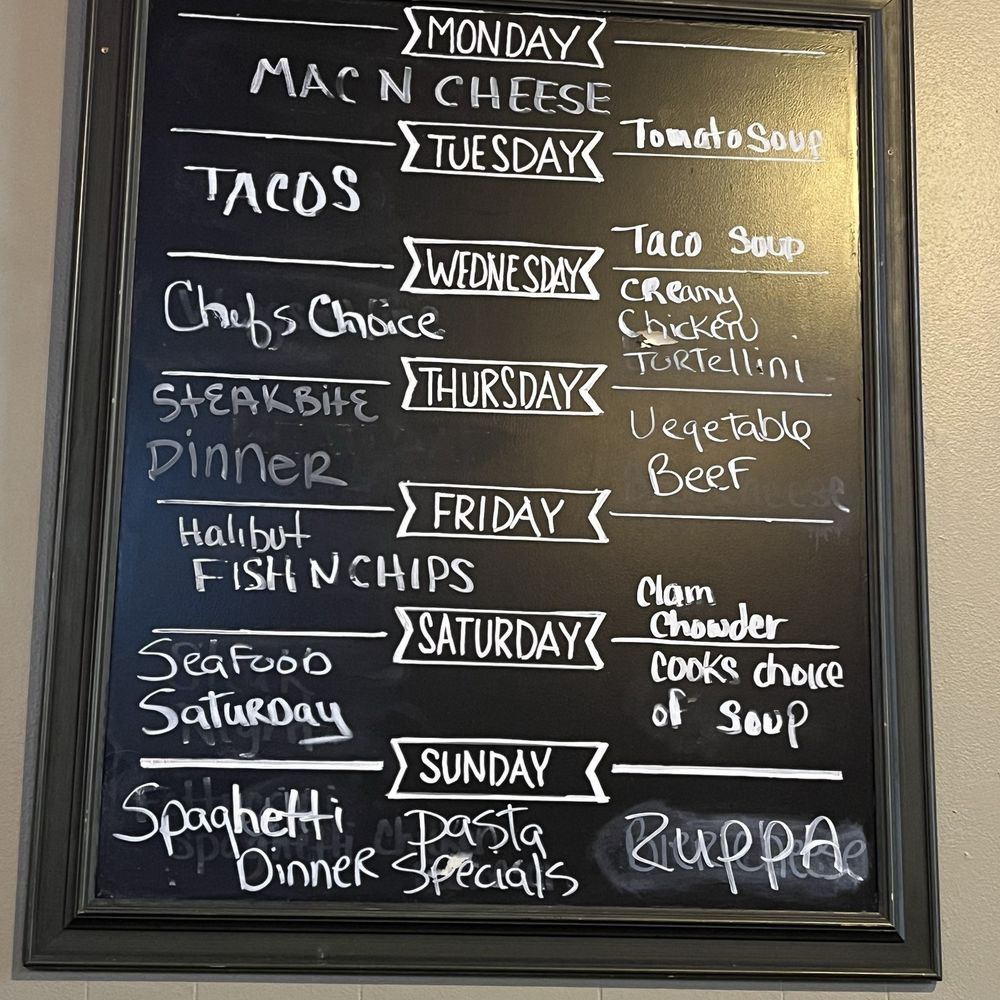 MONDAY
MAC N CHEESE
Tomato Soup
TUESDAY
TACOS
Taco Soup
WEDNESDAY
Chefs Choice
CReamy
Chicken
TORTellini
THURSDAY
STEAK BitE
DinneR
Vegetable
BeeF
FRIDAY
Halibut
FISH N CHIPS
Clam
Chowder
SATURDAY
SeaFOOD
SaTURDay
COOKS choice
of Soup
SUNDAY
Spaghetti
DinneR
pasta
Specials
ZuppA